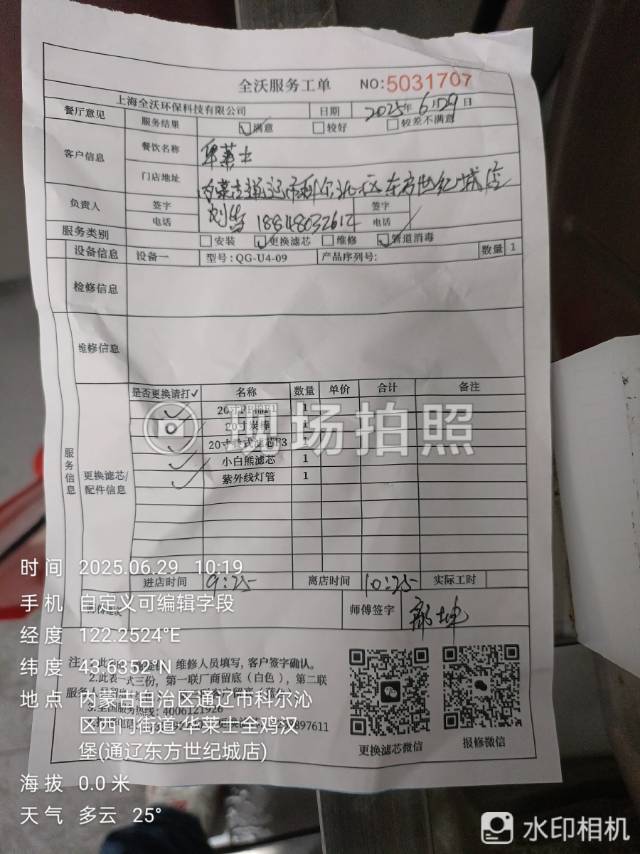 全沃服务工单 NO:5031707
上海全沃环保科技有限公司 日期 2025年6月29日
餐厅意见 服务结果 满意 较好 较差不满意
客户信息 餐饮名称 华莱士
门店地址 内蒙古通辽市科尔沁区东方世纪城店
负责人 签字 签字
电话 电话
服务类别 安装 更换滤芯 维修 管道消毒
设备信息 设备一 型号:QG-U4-09 产品序列号: 数量 1
检修信息
维修信息
服务信息
更换滤芯/配件信息
是否更换请打✓ 名称 数量 单价 合计 备注
✓ 1
✓ 1
✓
✓ 小白熊滤芯 1
✓ 紫外线灯管 1
进店时间 9:25 离店时间 10:25 实际工时
师傅签字
维修人员填写,客户签字确认。
2.此表一式三份,第一联厂商留底(白色),第二联
3.全国服务热线:4006121926
更换滤芯微信 报修微信
现场拍照
时间 2025.06.29 10:19
手机 自定义可编辑字段
经度 122.2524°E
纬度 43.6352°N
地点 内蒙古自治区通辽市科尔沁
区西门街道·华莱士全鸡汉
堡(通辽东方世纪城店)
海拔 0.0米
天气 多云 25°
水印相机